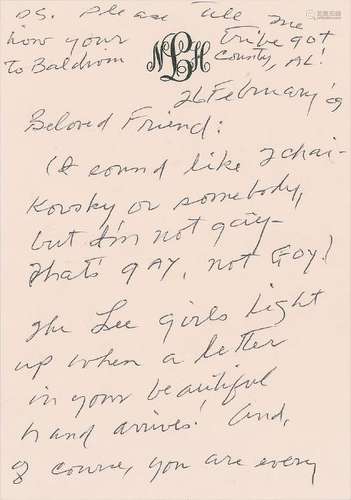 PS. Please tell me
how your tribe got
To Baldwin County, AL!
NLH
26 February '09
Beloved Friend:
(I sound like Tchai-
Kovsky or somebody,
but I'm not gay—
That's gAY, not GOY!
The Lee girls light
up when a letter
in your beautiful
hand arrives! And,
of course, you are every